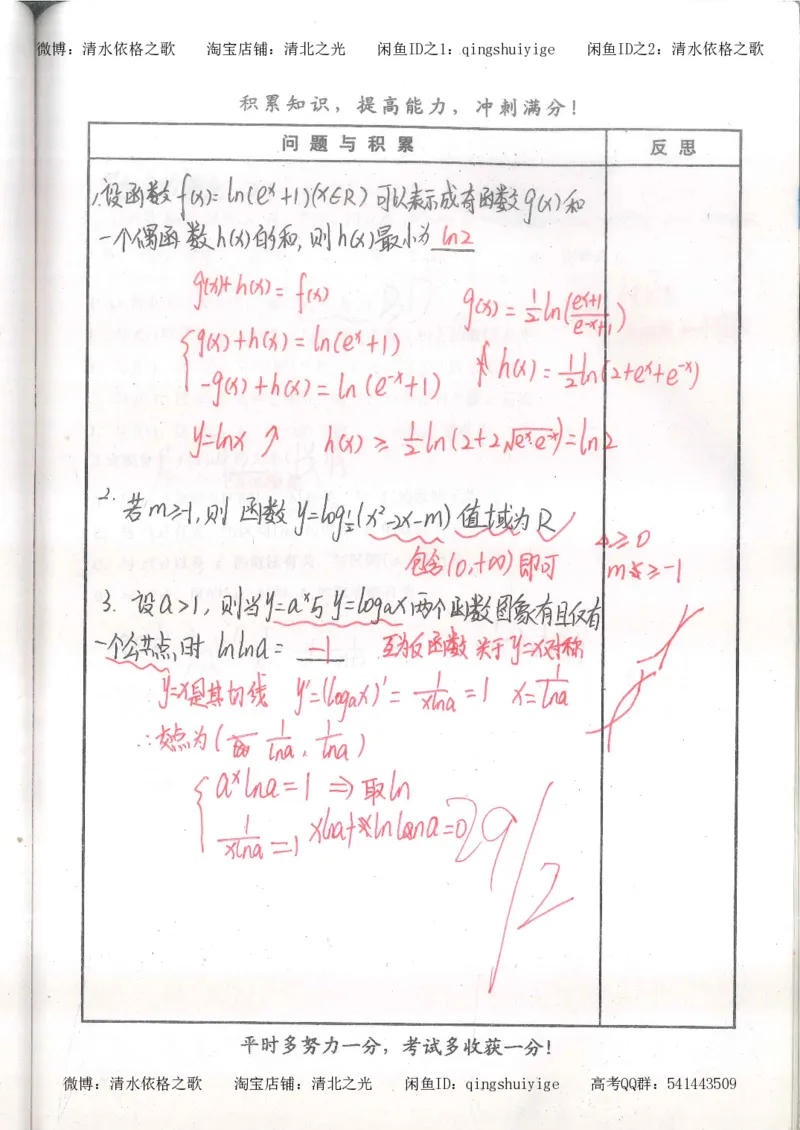 微博：清水依格之歌 淘宝店铺：清北之光 闲鱼ID之1：qingshuiyige 闲鱼ID之2：清水依格之歌
积累知识，提高能力，冲刺满分！
问题与积累 反思
1.设函数f(x)=ln(eˣ+1)(x∈R)可以表示成奇函数g(x)和
一个偶函数h(x)的和,则h(x)最小为 ln2
g(x)+h(x)=f(x)
g(x)+h(x)=ln(eˣ+1)
-g(x)+h(x)=ln(e⁻ˣ+1)
g(x)=½ln(eˣ+1/e⁻ˣ+1)
h(x)=½ln(2+eˣ+e⁻ˣ)
y=lnx ↗ h(x)≥½ln(2+2√eˣe⁻ˣ)=ln2
2.若m≥-1,则函数y=log½(x²-2x-m)值域为R ✓
包含(0,+∞)即可
△≥0
m≥-1
3.设a>1,则当y=aˣ与y=logₐx两个函数图象有且仅有
一个公共点时 lnlna= -1 互为反函数 关于y=x对称
y=x是其切线 y'=(logₐx)'=1/xlna=1 x=1/lna
∴交点为(1/lna,1/lna)
aˣlna=1 ⇒取ln
1/xlna=1
29/2
平时多努力一分，考试多收获一分！
微博：清水依格之歌 淘宝店铺：清北之光 闲鱼ID：qingshuiyige 高考QQ群：541443509